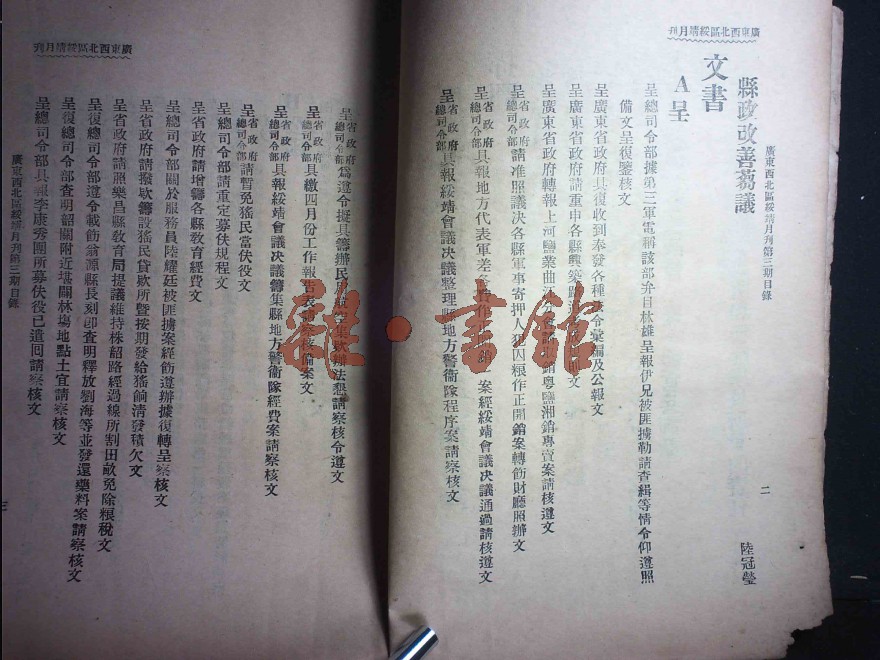 廣東西北區綏靖月刊
廣東西北區綏靖月刊第三期目錄
二
縣政改善芻議
陸冠瑩
文書
A呈
呈總司令部據第三軍電稱該部弁目林雄呈報伊兄被匪擄勒請查緝等情令仰遵照
備文呈復鑒核文
呈廣東省政府具復收到奉發各種 令彙編及公報文
呈廣東省政府請重申各縣興築
呈廣東省政府轉報上河鹽業曲 請粵鹽湘銷專賣案請核遵文
呈省政府總司令部請准照議决各縣軍事寄押人犯囚粮作正開銷案轉飭財廳照辦文
呈省政府總司令部具報地方代表軍差各費作正 案經綏靖會議决議通過請核遵文
呈省政府總司令部具報綏靖會議决議整理縣地方警衛隊程序案請察核文
廣東西北區綏靖月刊
呈省政府總司令部爲遵令擬具籌辦民 集欵辦法懇請察核令遵文
呈省政府總司令部具繳四月份工作報告表請察核備案文
呈省政府總司令部具報綏靖會議决議籌集縣地方警衛隊經費案請察核文
呈省政府總司令部請暫免猺民當伕役文
呈總司令部請重定募伕規程文
呈省政府請增籌各縣教育經費文
呈總司令部關於服務員陸耀廷被匪擄案經飭遵辦據復轉呈察核文
呈省政府請撥欵籌設猺民貸欵所暨按期發給猺餉清發積欠文
呈省政府請照樂昌縣教育局提議維持株韶路經過線所割田畝免除粮稅文
呈復總司令部遵令載飭翁源縣長刻卽查明釋放劉海等並發還藥料案請察核文
呈復總司令部查明韶關附近堪闢林塲地點土宜請察核文
呈總司令部具報李康秀團所募伕役已遣回請察核文
廣東西北區綏靖月刊第三期目錄
三
雅·書館